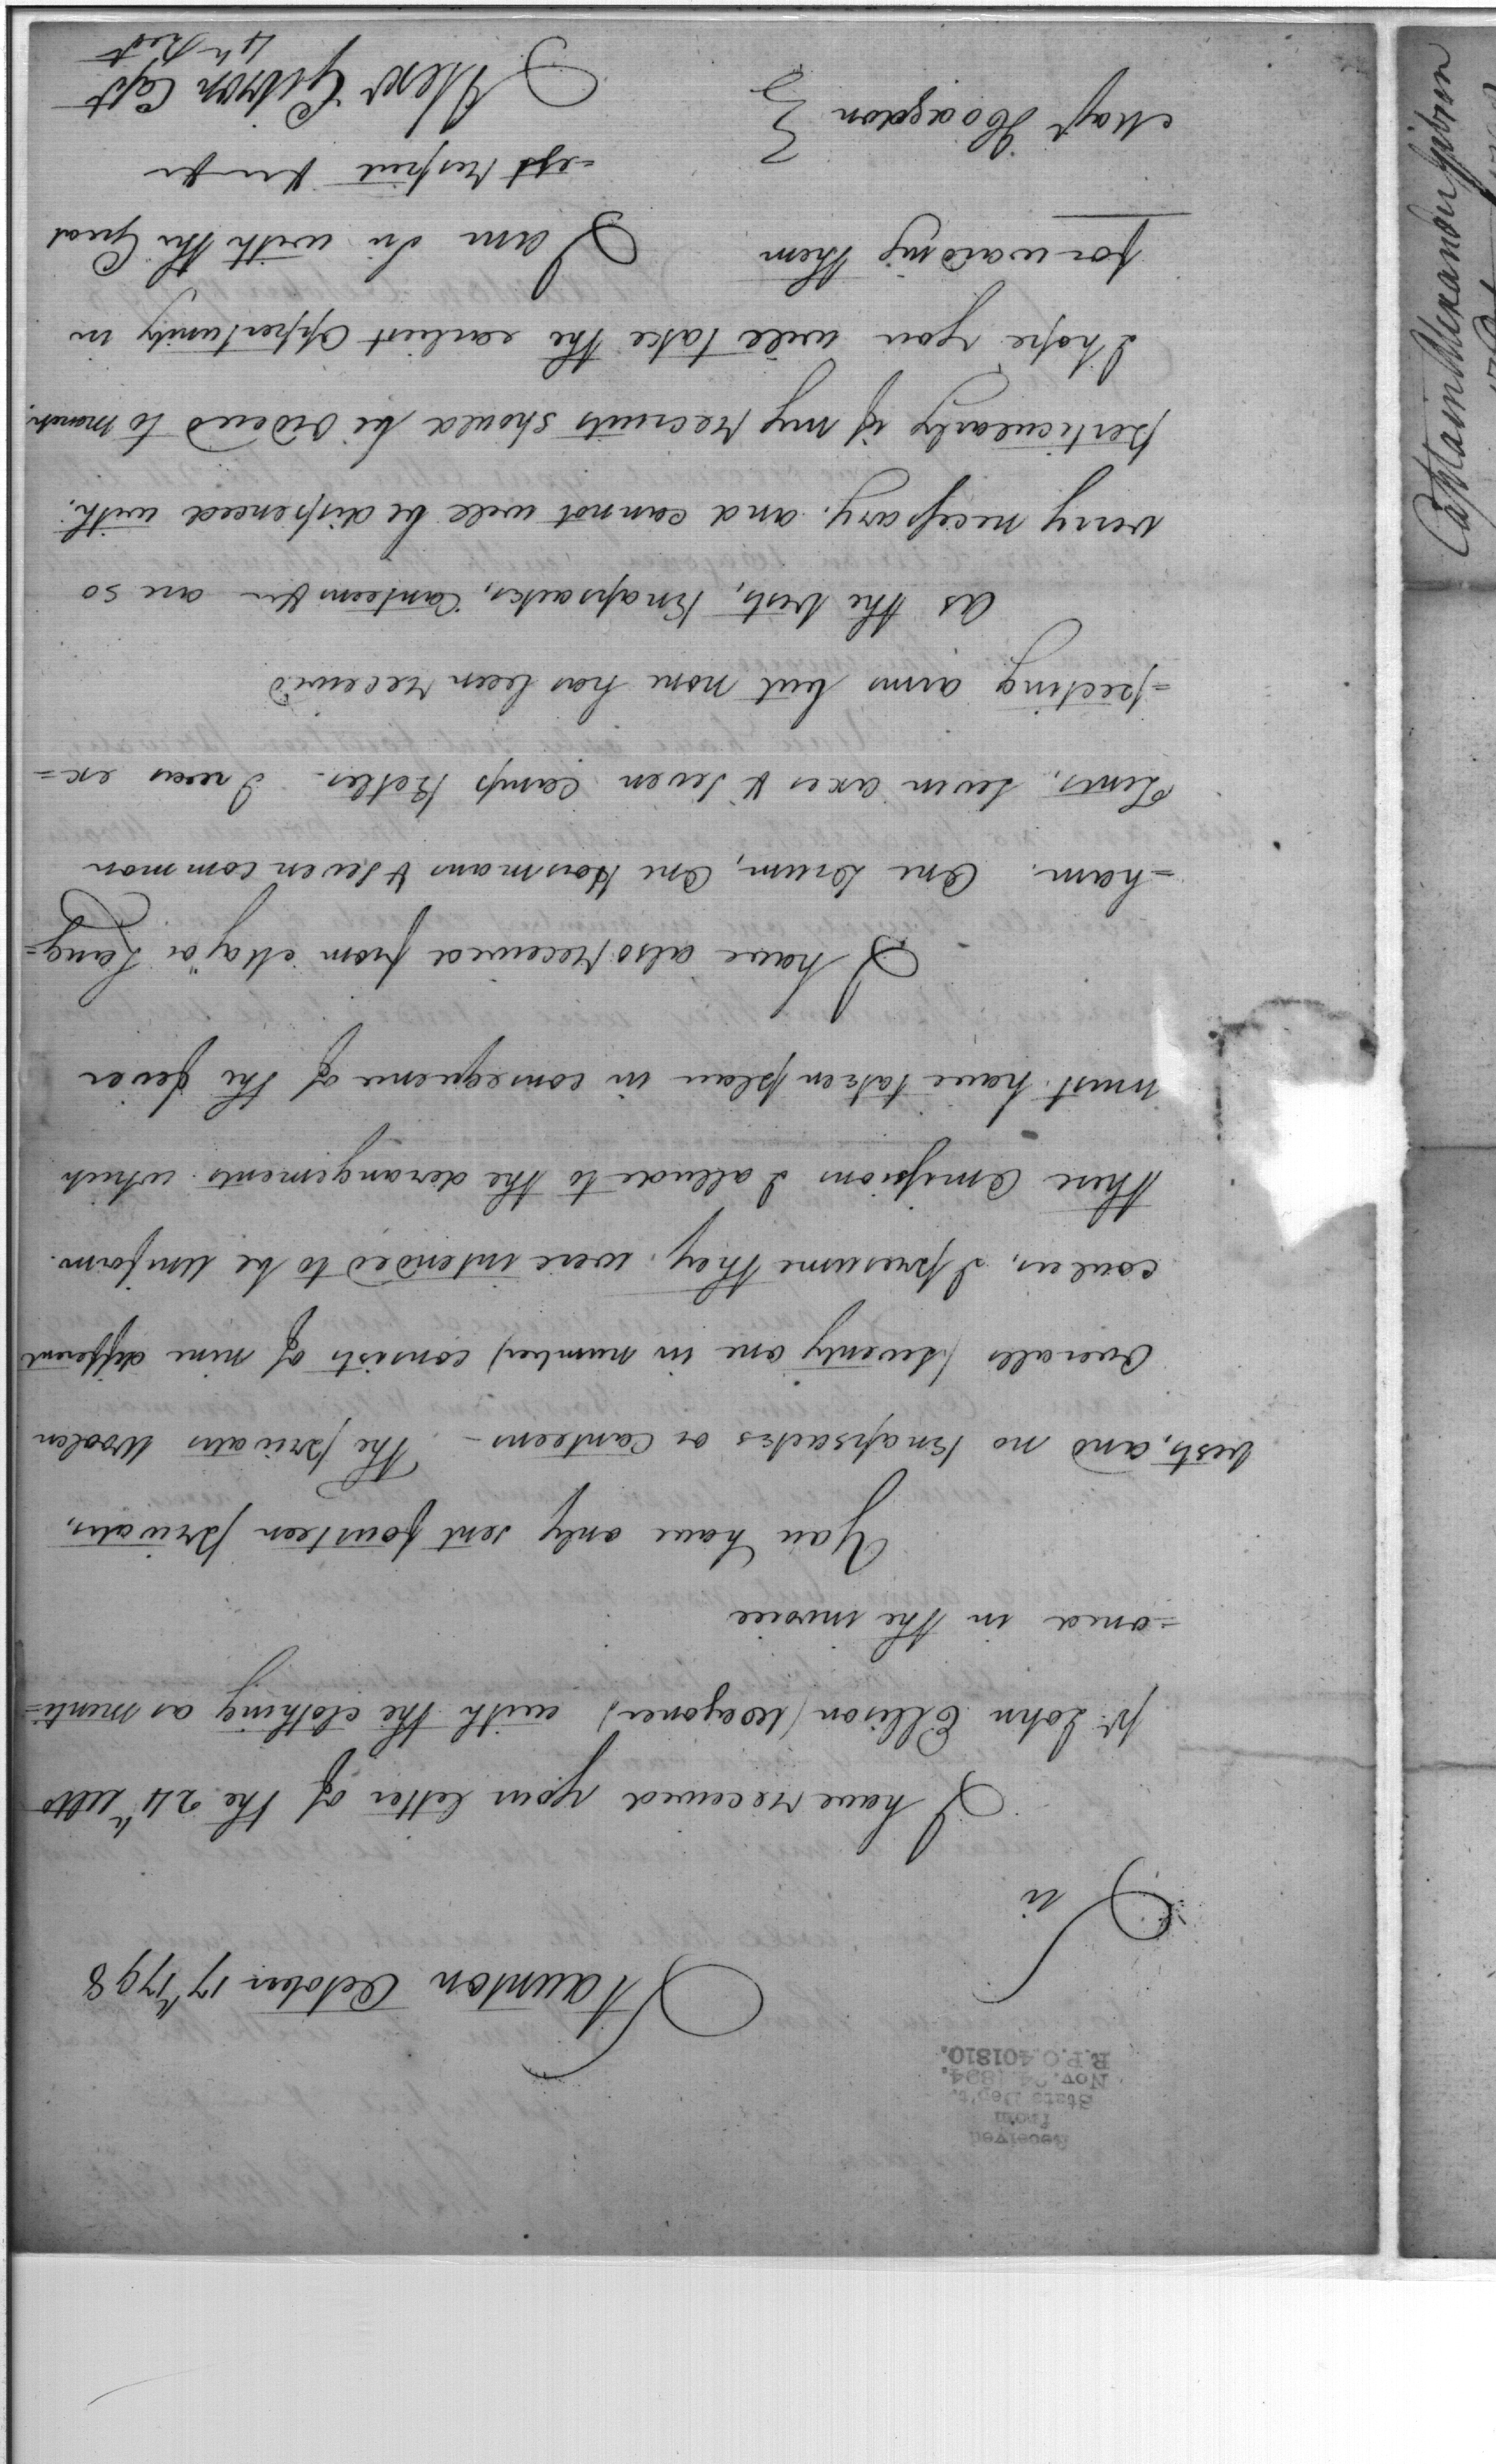 Received
from
State Dep't.
Nov. 24, 1894.
R.P.O. 401810.
Staunton October 17th 1798
Sir
I have received your letter of the 24th ulto
pr. John Ellison (Wagoner) with the clothing as menti=
=oned in the invoice
You have only sent fourteen privates,
vests, and no Knapsacks or Canteens - The privates Woolen
Overalls (seventy one in number) consists of nine different
coulers, I presume they were intended to be Uniform.
These Omissions I allude to the derangements which
must have taken place in consequence of the fever
I have also received from Major Lang=
=ham. One Drum, One Horsmans & Seven common
Tents, Seven axes & Seven Camp Ketles - I was ex=
=pecting arms but none has been received
As the Vests, Knapsacks, Canteens &c are so
very necessary, and cannot well be dispenced with.
perticulearly if my recruits should be Ordered to march.
I hope you will take the earliest Oppertunity in
forwarding them
I am Sir with the Great
=est respect &c
Alexr Gibson Capt
4th Regt
Majr Hodgdon
Captain Alexander Gibson